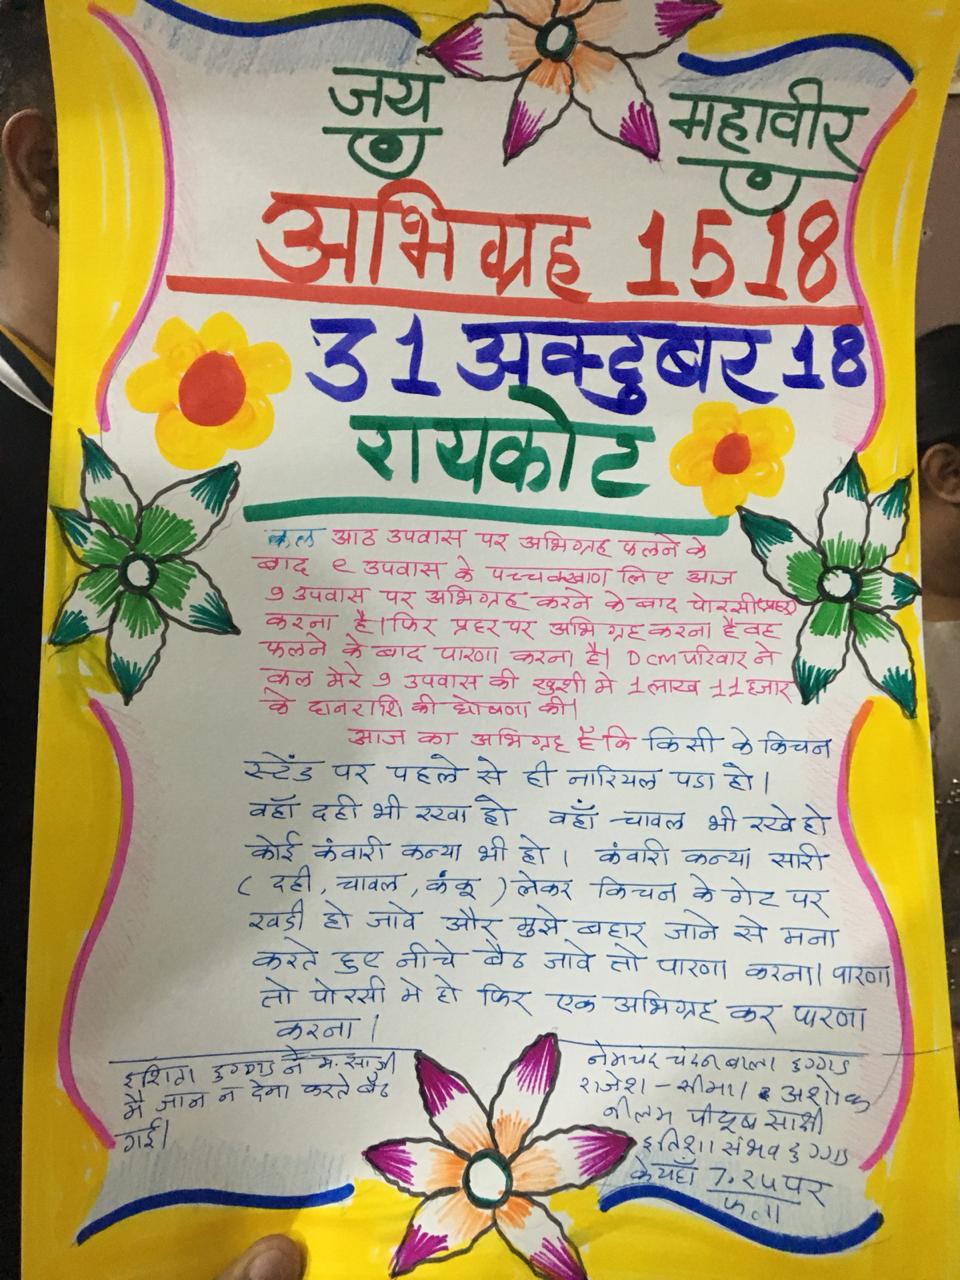 जय महावीर
अभिग्रह 1518
31 अक्टुबर 18
रायकोट
कल आठ उपवास पर अभिग्रह फलने के
बाद ९ उपवास के पच्चक्खाण लिए आज
9 उपवास पर अभिग्रह करने के बाद पोरसी(प्रहर)
करना है। फिर प्रहर पर अभिग्रह करना है वह
फलने के बाद पारणा करना है। DCM परिवार ने
कल मेरे 9 उपवास की खुशी मे 1 लाख 11 हजार
के दानराशि की घोषणा की।
आज का अभिग्रह है कि किसी के किचन
स्टेंड पर पहले से ही नारियल पडा हो।
वहाँ दही भी रखा हो वहाँ चावल भी रखे हो
कोई कंवारी कन्या भी हो। कंवारी कन्या सारी
(दही, चावल, कंकू) लेकर किचन के गेट पर
खडी हो जावे और मुझे बहार जाने से मना
करते हुए नीचे बैठ जावे तो पारणा करना। पारणा
तो पोरसी मे हो फिर एक अभिग्रह कर पारणा
करना।
इशिता डुग्गड ने म. साजी
मै जान न देना करते बैठ
गई।
नेमचंद चंदनबाला डुग्गड
राजेश - सीमा। अशोक
नीलम पीयूष साक्षी
इतिशा संभव डुग्गड
के यहाँ 7.25 पर
फला